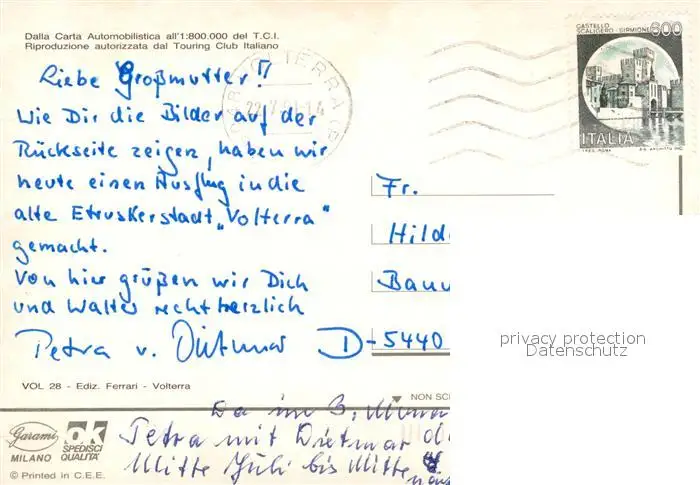 Dalla Carta Automobilistica all'1:800.000 del T.C.I.
Riproduzione autorizzata dal Touring Club Italiano
Liebe Großmutter!!
Wie Dir die Bilder auf der
Rückseite zeigen, haben wir
heute einen Ausflug in die
alte Etruskerstadt „Volterra"
gemacht.
Von hier grüßen wir Dich
und Walter recht herzlich
Petra u. Dietmar
VOL 28 - Ediz. Ferrari - Volterra
CASTELLO
SCALIGERO - SIRMIONE
600
ITALIA
Fr.
Hild
Bau
D-5440
privacy protection
Datenschutz
NON SC
Da im
Petra mit Dietmar
Mitte Juli bis Mitte
Garami
MILANO
OK
SPEDISCI
QUALITA'
© Printed in C.E.E.